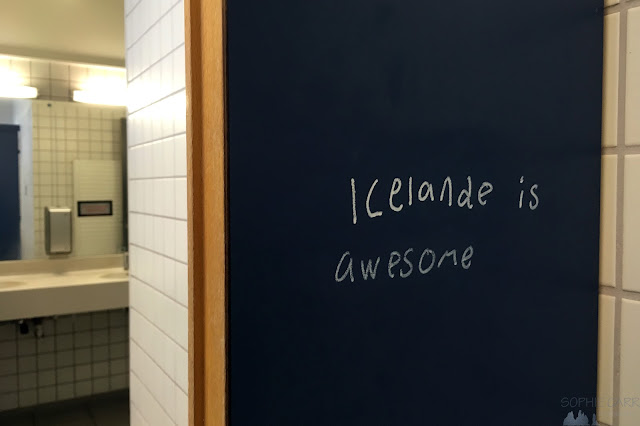 Icelande is
awesome
SOPHIE